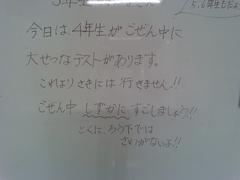 今日は4年生がごぜん中に
大せつなテストがあります。
これよりさきには行きません!!
ごぜん中しずかにすごしましょう!!
とくに、ろう下では
さわがないよ!!